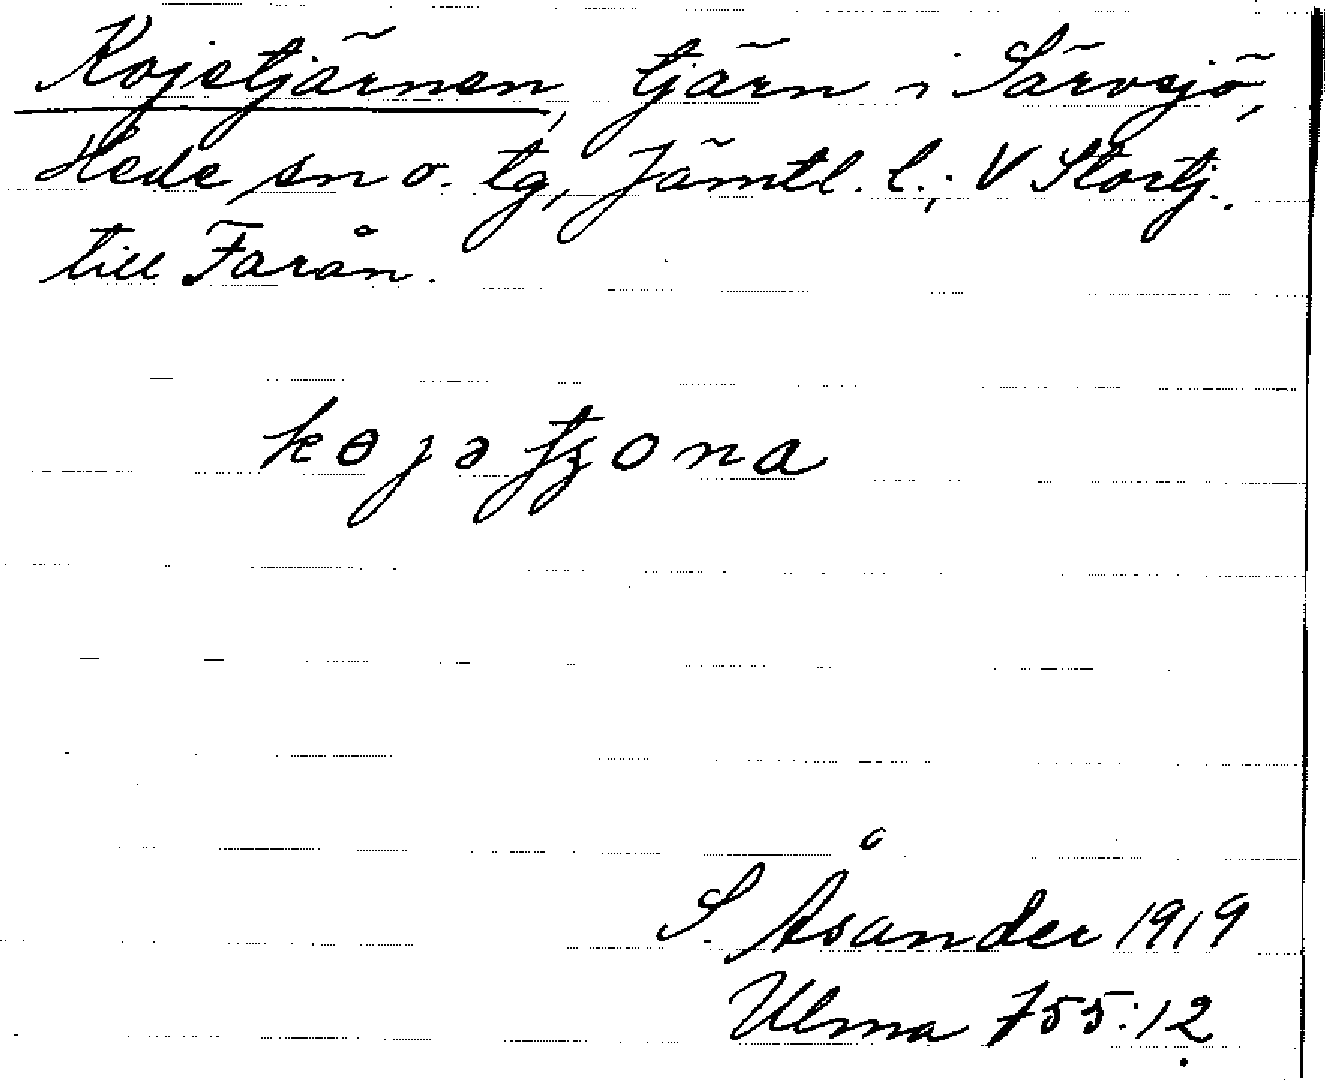 Kojetjärnen, tjärn i Särvsjö,
Hede sn o. tg, Jämtl. l.; V Stortj.
till Farån.
kɵjətʒona
S. Åsander 1919
Ulma 755:12